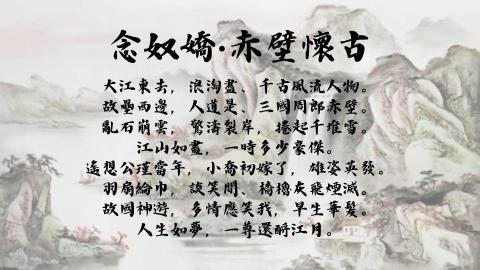 念奴嬌·赤壁懷古
大江東去，浪淘盡、千古風流人物。
故壘西邊，人道是、三國周郎赤壁。
亂石崩雲，驚濤裂岸，捲起千堆雪。
江山如畫，一時多少豪傑。
遙想公瑾當年，小喬初嫁了，雄姿英發。
羽扇綸巾，談笑間、檣櫓灰飛煙滅。
故國神遊，多情應笑我，早生華髮。
人生如夢，一尊還酹江月。